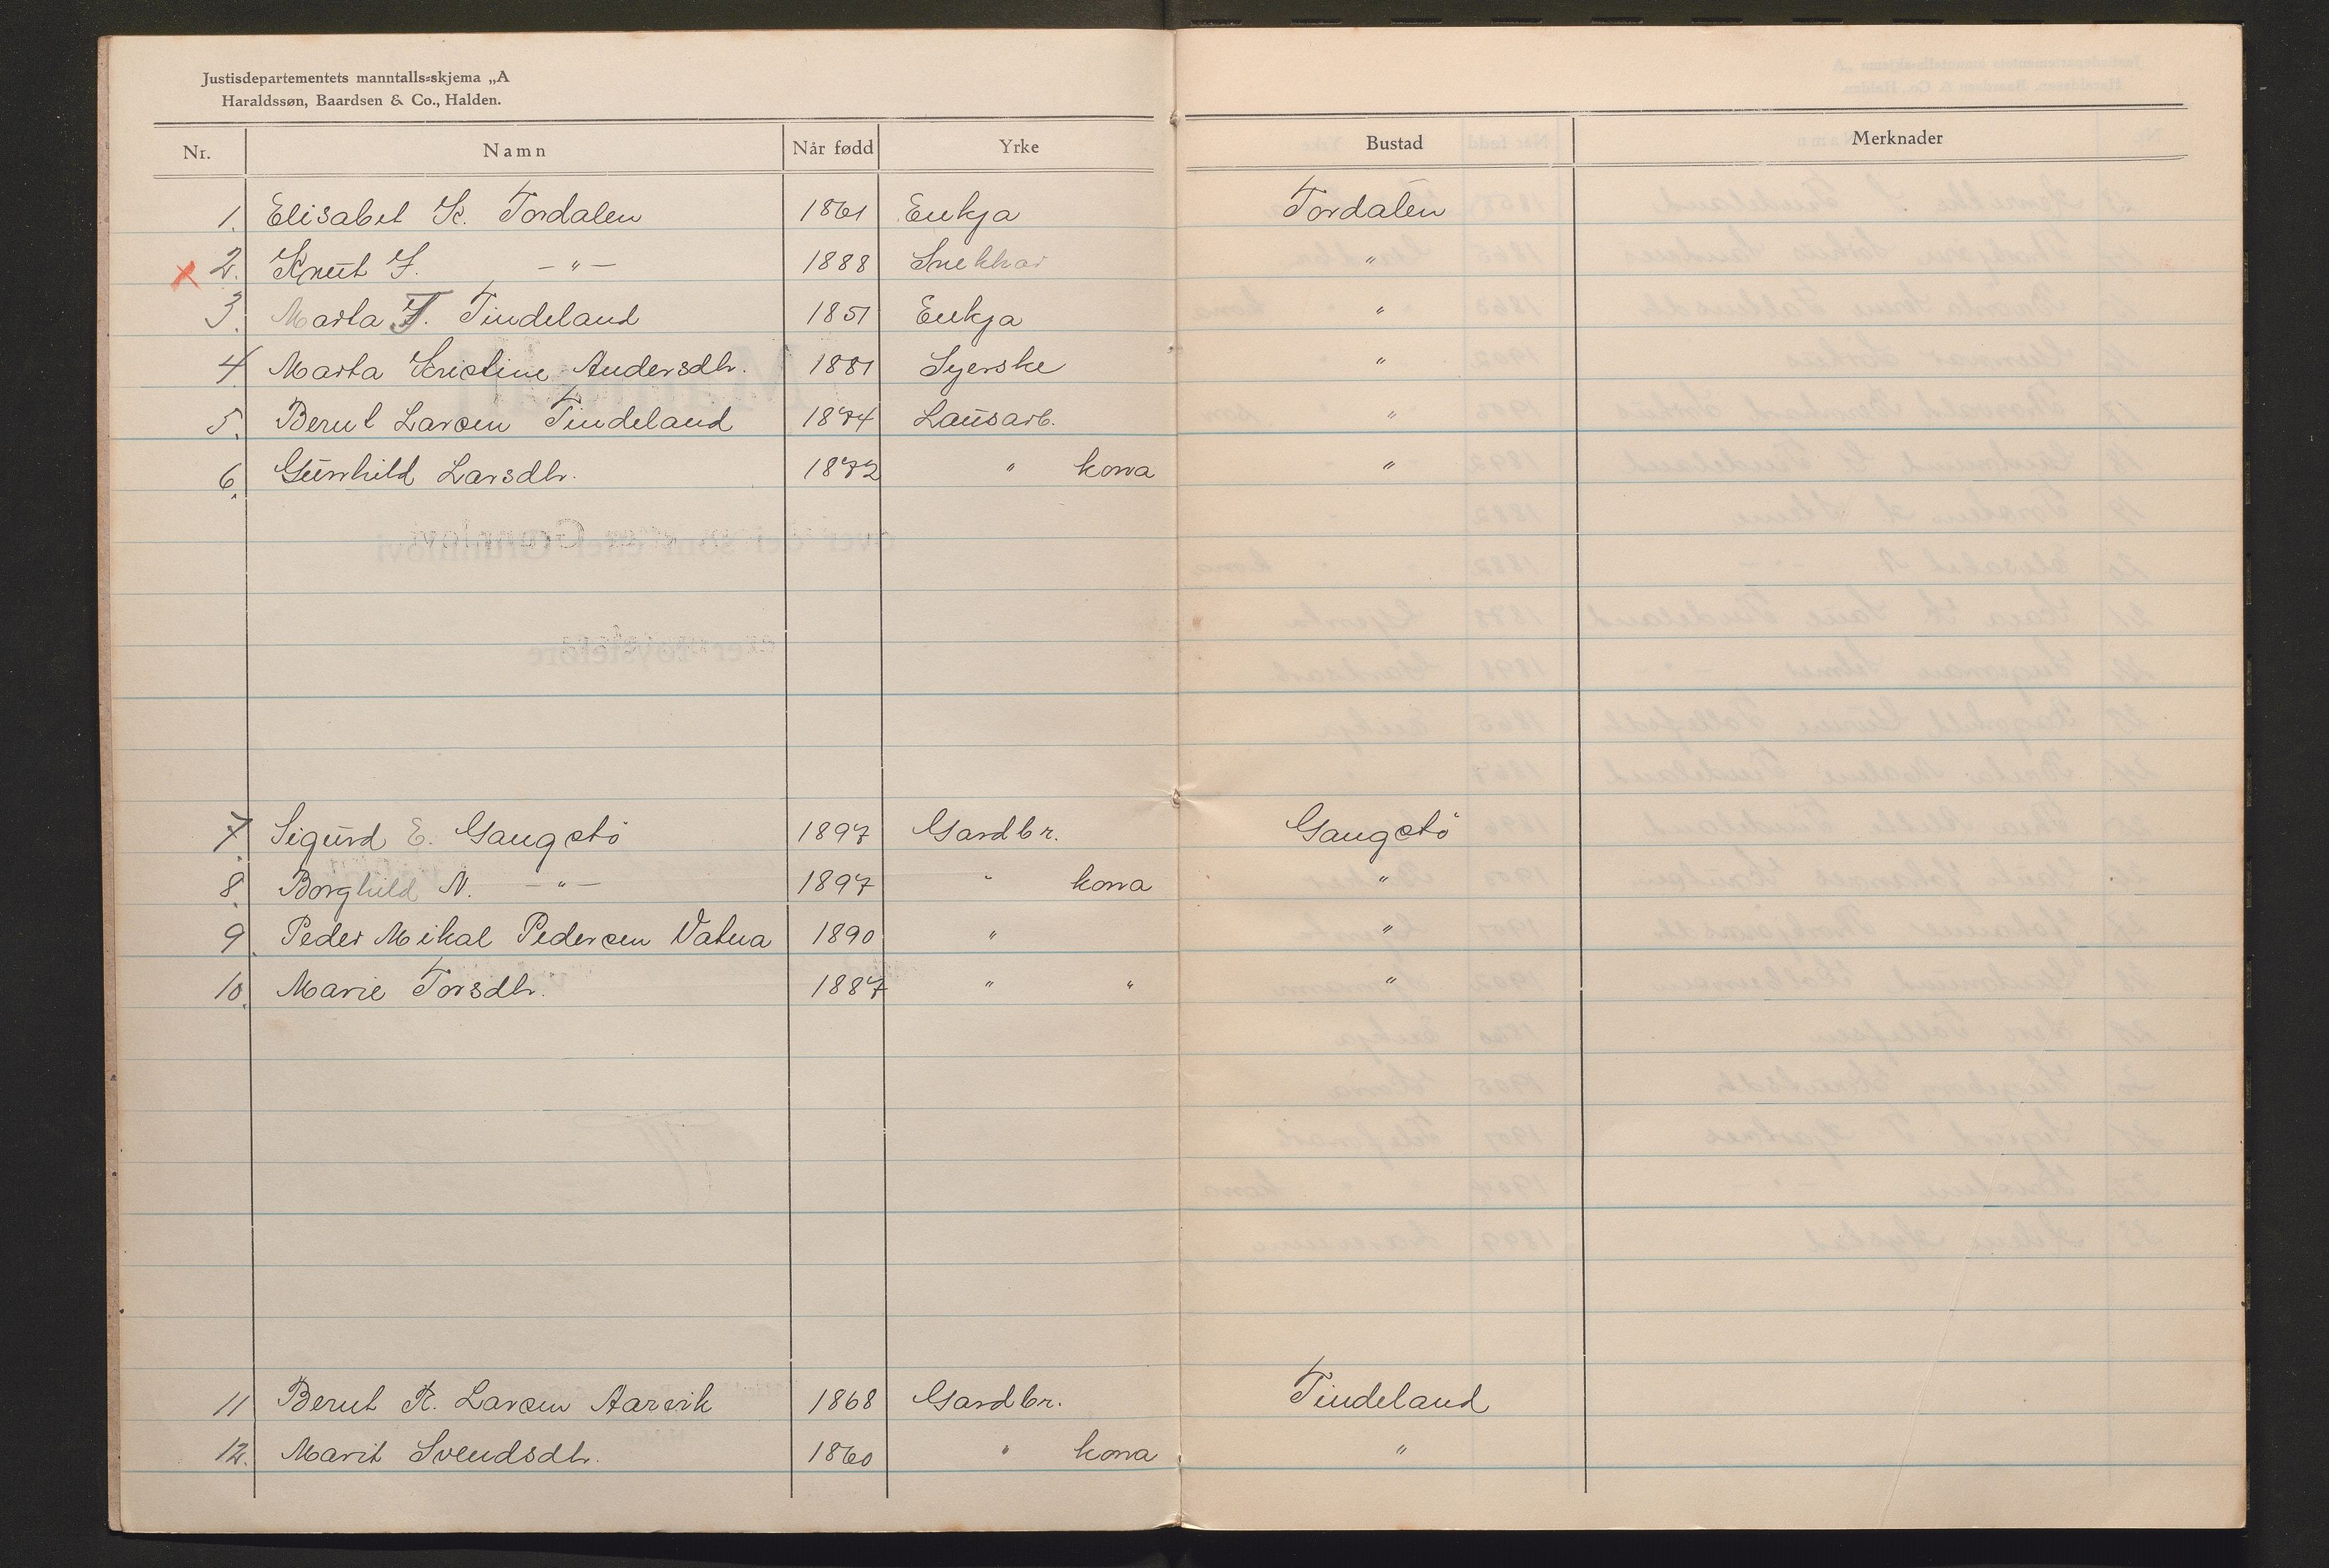 Justisdepartementets manntalls-skjema „A
Haraldssøn, Baardsen & Co., Halden.
Nr. Namn Når fødd Yrke Bustad Merknader
1. Elisabet K. Tordalen 1861 Enkja Tordalen
x 2. Knut I. —〃— 1888 Snekkar 〃
3. Marta T. Tindeland 1851 Enkja 〃
4 Marta Kristine Andersdtr. 1881 Syerske 〃
5. Bernt Larsen Tindeland 1874 Lausarb. 〃
6. Gunhild Larsdtr. 1872 〃 kona 〃
7. Sigurd E. Gangstö 1897 Gardbr. Gangstö
8. Borghild N. —〃— 1897 〃 kona 〃
9. Peder Mikal Pedersen Vatna 1890 〃 〃
10. Marie Torsdtr. 1887 〃 〃 〃
11 Bernt K. Larsen Aarvik 1868 Gardbr. Tindeland
12. Marit Svendsdtr. 1860 〃 kona 〃